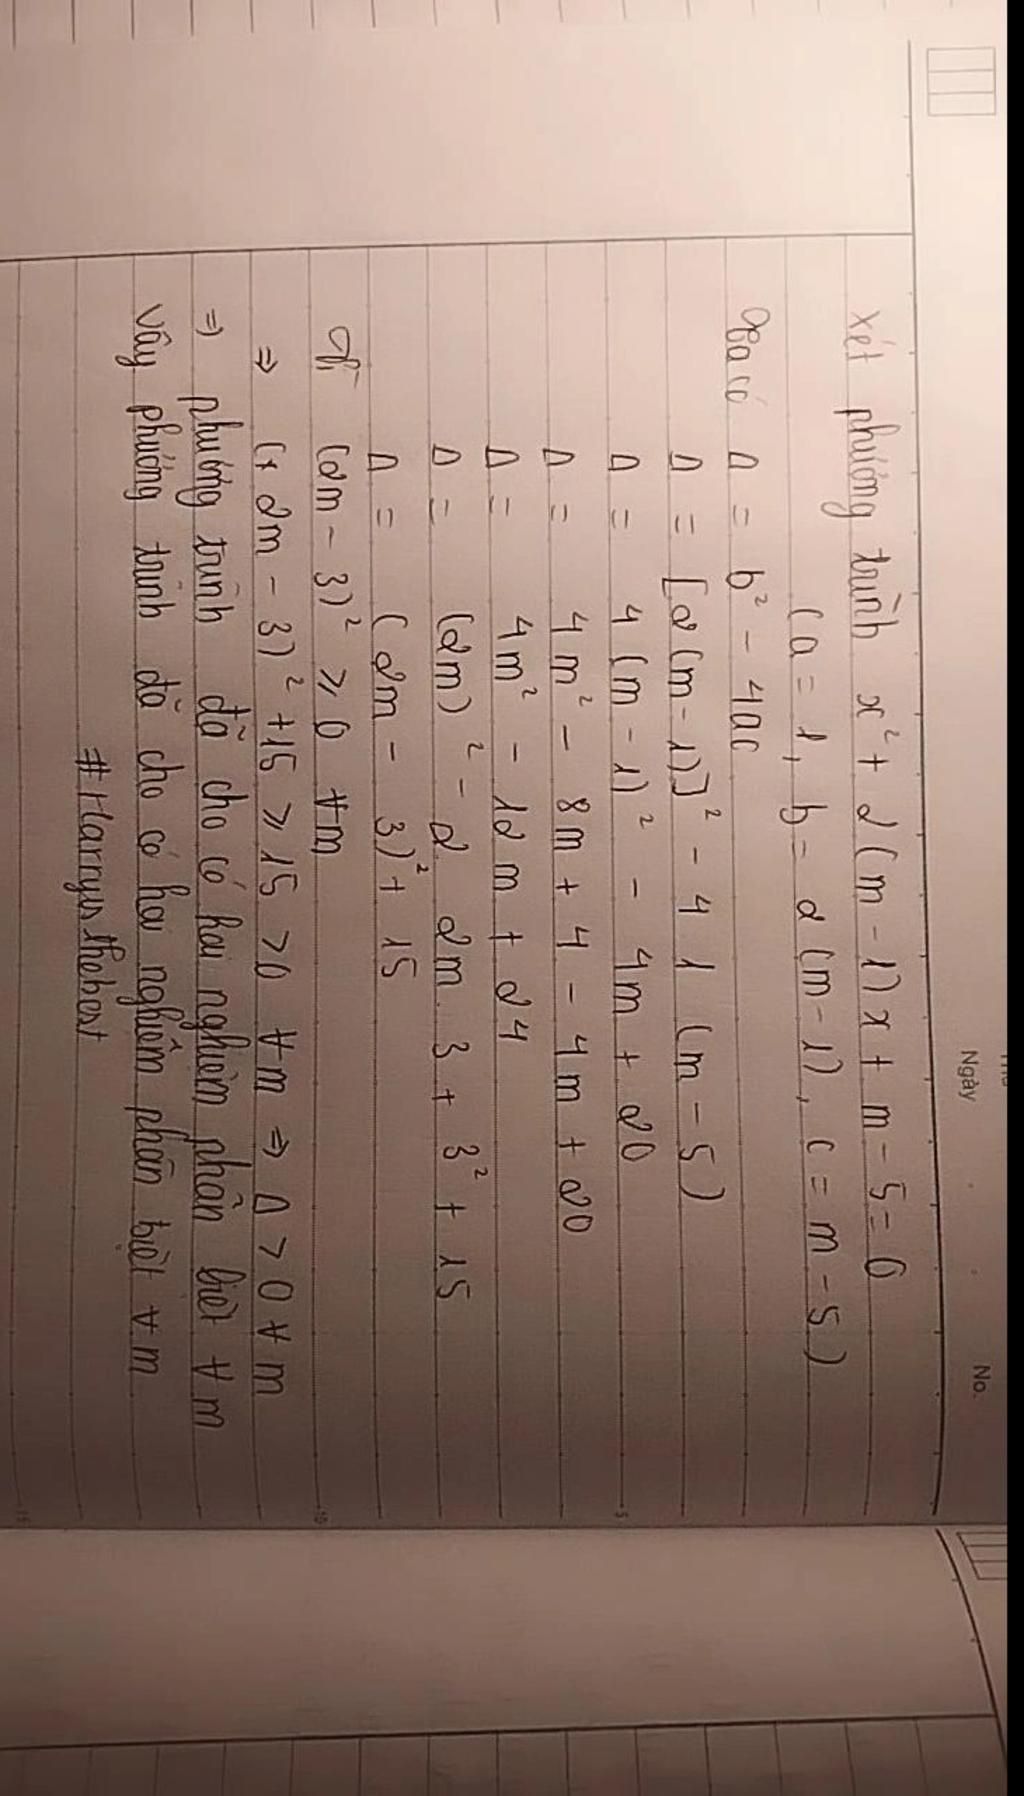 Ngày
No.
xét phương trình x² + 2(m - 1)x + m - 5 = 0
(a = 1, b = 2(m - 1), c = m - 5)
Ta có Δ = b² - 4ac
Δ = [2(m-1)]² - 4 1 (m - 5)
Δ = 4(m - 1)² - 4m + 20
Δ = 4m² - 8m + 4 - 4m + 20
Δ = 4m² - 12m + 24
Δ = (2m)² - 2. 2m. 3 + 3² + 15
Δ = (2m - 3)² + 15
Vì (2m - 3)² ≥ 0 ∀m
⇒ (2m - 3)² + 15 ≥ 15 > 0 ∀m ⇒ Δ > 0 ∀m
⇒ phương trình đã cho có hai nghiệm phân biệt ∀m
Vậy phương trình đã cho có hai nghiệm phân biệt ∀m
#Harryisthebest
5
10
15